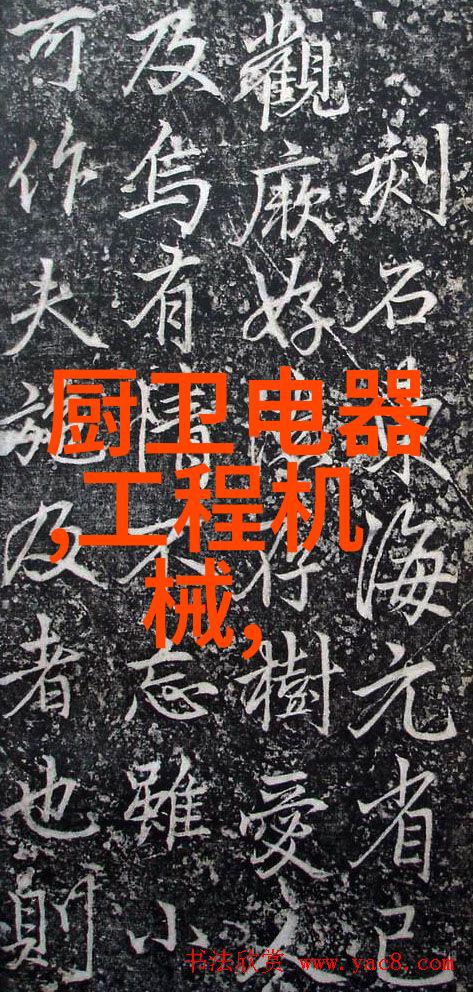 刻石海元省已
觀厥好存樹愛
及烏有情不忘雖小
可作夫施及者也則
厨卫电器
,工程机
械,
书法欣赏 www.yac8.com